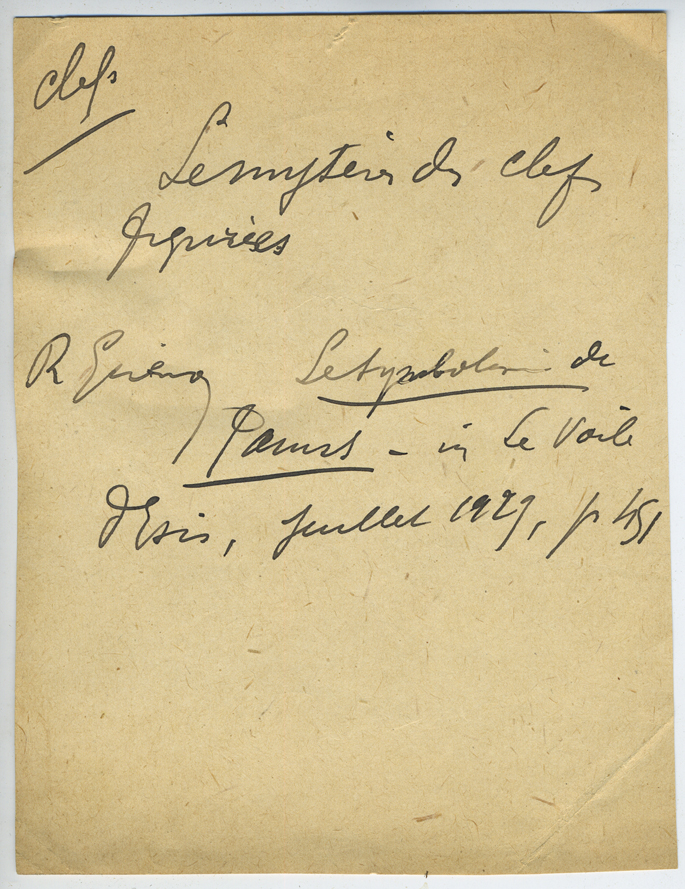 clefs
Le mystère des clefs
figurées
R Guénon Le Symbolisme de
Janus - in Le Voile
d'Isis, juillet 1929, p 451